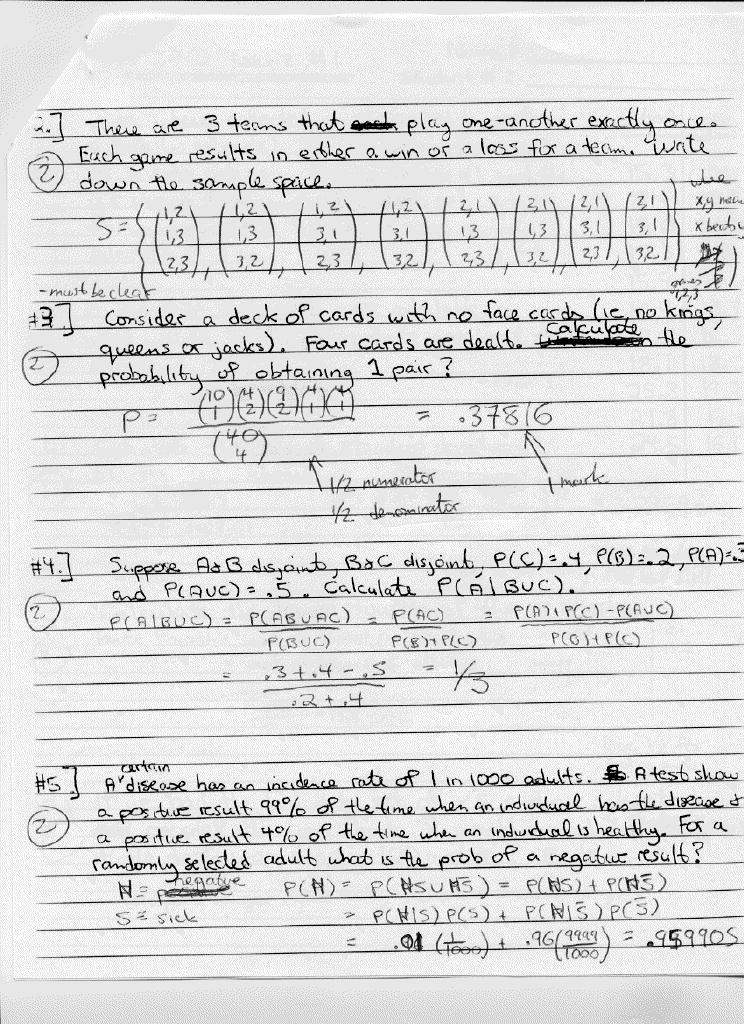 2.] There are 3 teams that play one-another exactly once.
② Each game results in either a win or a loss for a team. Write
down the sample space.
S = { (1,2 1,3 2,3), (1,2 1,3 3,2), (1,2 3,1 2,3), (1,2 3,1 3,2), (2,1 1,3 2,3), (2,1 1,3 3,2), (2,1 3,1 2,3), (2,1 3,1 3,2) } where
x,y means
x beats y
games
1,2,3
- must be clear
#3.] Consider a deck of cards with no face cards (ie, no kings,
② queens or jacks). Four cards are dealt. Calculate the
probability of obtaining 1 pair?
P = (10 1)(4 2)(9 2)(4 1)(4 1) / (40 4) = .37816
1/2 numerator
1/2 denominator
1 mark
#4.] Suppose A&B disjoint, B&C disjoint, P(C)=.4, P(B)=.2, P(A)=.3
and P(AUC)=.5. Calculate P(A|BUC).
② P(A|BUC) = P(ABUAC) / P(BUC) = P(AC) / P(B)+P(C) = P(A)+P(C)-P(AUC) / P(B)+P(C)
= .3+.4-.5 / .2+.4 = 1/3
#5] A certain disease has an incidence rate of 1 in 1000 adults. A test show
② a positive result 99% of the time when an individual has the disease &
a positive result 4% of the time when an individual is healthy. For a
randomly selected adult what is the prob of a negative result?
N = negative P(N) = P(NS U NS̄) = P(NS) + P(NS̄)
S = sick = P(N|S)P(S) + P(N|S̄)P(S̄)
= .01 (1/1000) + .96 (9999/1000) = .959905